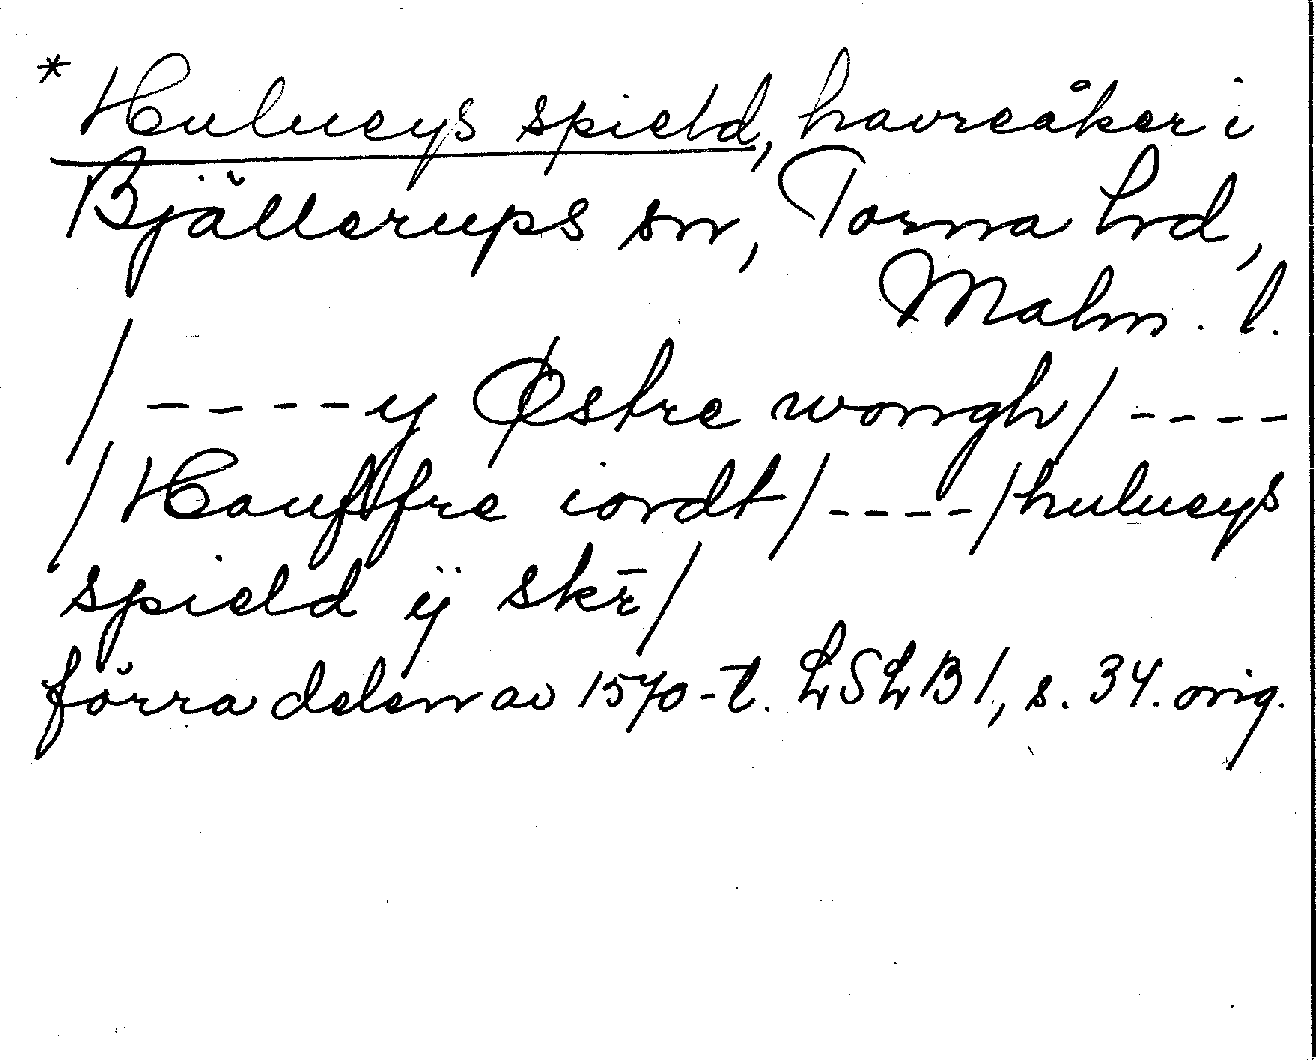 * Hulueys spield, havreåker i
Bjällerups sn, Torna hd,
Malm. l.
/ ----y Østre wongh/ ----
/Hauffre iordt/----/hulueys
spield ÿ skr̄/
förra delen av 1570-t. LSLB1, s. 34. orig.